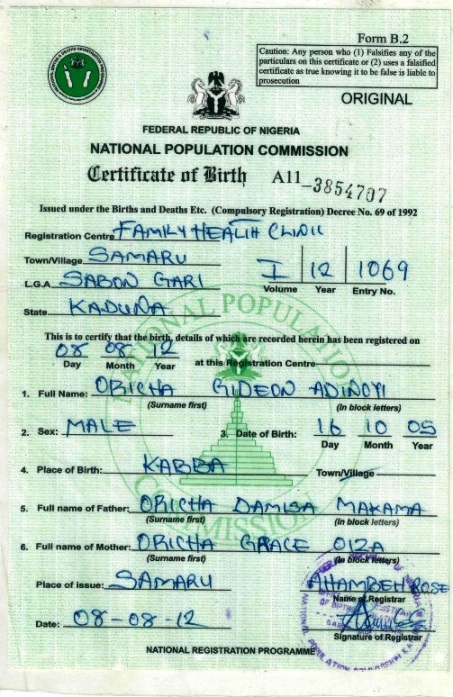 Form B.2
Caution: Any person who (1) Falsifies any of the
particulars on this certificate or (2) uses a falsified
certificate as true knowing it to be false is liable to
prosecution
ORIGINAL
FEDERAL REPUBLIC OF NIGERIA
NATIONAL POPULATION COMMISSION
Certificate of Birth A11 -3854707
Issued under the Births and Deaths Etc. (Compulsory Registration) Decree No. 69 of 1992
Registration Centre FAMILY HEALTH CLINIC
Town/Village SAMARU
L.G.A. SABON GARI
State KADUNA
I 12 1069
Volume Year Entry No.
This is to certify that the birth, details of which are recorded herein has been registered on
08 08 12
Day Month Year at this Registration Centre
1. Full Name: ORICHA GIDEON ADINOYI
(Surname first) (In block letters)
2. Sex: MALE 3. Date of Birth: 16 10 05
Day Month Year
4. Place of Birth: KABBA Town/Village
5. Full name of Father: ORICHA DAMISA MAKAMA
(Surname first) (In block letters)
6. Full name of Mother: ORICHA GRACE OIZA
(Surname first) (In block letters)
Place of issue: SAMARU
ROSE
Name of Registrar
Date: 08-08-12
Signature of Registrar
NATIONAL REGISTRATION PROGRAMME
NATIONAL POPULATION
COMMISSION